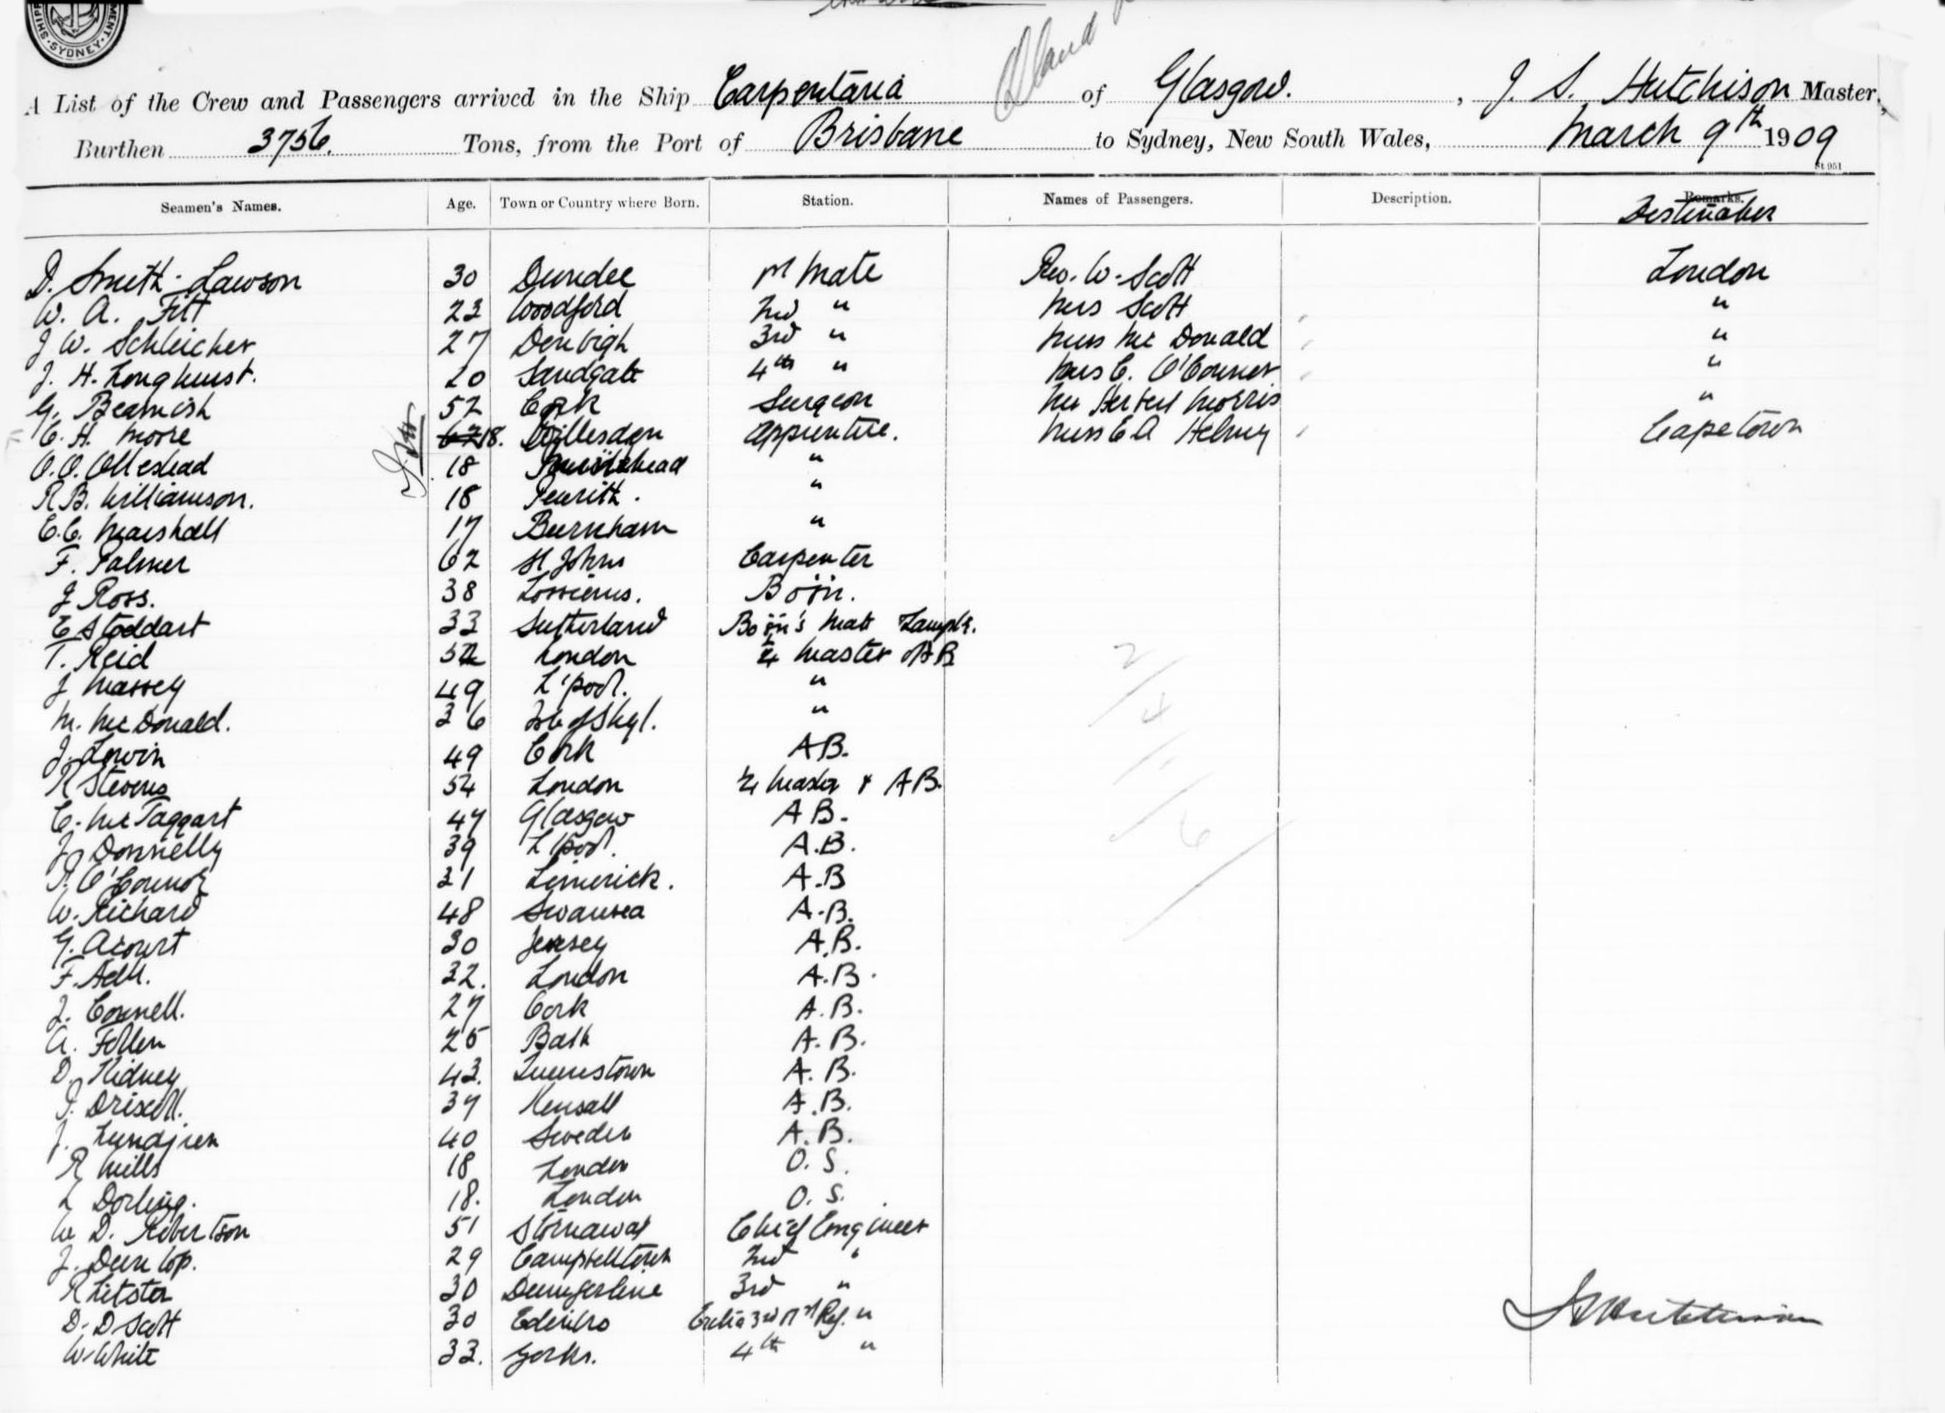 SYDNEY
A List of the Crew and Passengers arrived in the Ship Carpentaria of Glasgow. , J. S. Hutchison Master,
Burthen 3756. Tons, from the Port of Brisbane to Sydney, New South Wales, March 9th 1909
Seamen's Names. Age. Town or Country where Born. Station. Names of Passengers. Description. Remarks.
Destination
D. Smith-Lawson 30 Dundee 1st Mate Rev. W. Scott London
W. A. Fitt 23 Woodford 2nd " Mrs Scott "
J W. Schleicher 27 Denbigh 3rd " Miss Mc Donald "
J. H. Longhurst. 20 Sandgate 4th " E. O'Connor "
G. Beamish 52 Cork Surgeon Mr Herbert Morris "
C. H. Moore 18. Willesden Apprentice. Miss E A Capetown
O. O. Olleshead 18 "
R B. Williamson. 18 Penrith. "
C. C. Marshall 17 Burnham "
F. Palmer 62 St Johns Carpenter
J Ross. 38 Bosn.
E Stoddart 33 Sutherland Bosn's Mate Lamps.
T. Reid 52 London 1/4 Master & AB
J Massey 49 L'pool. "
M. Mc Donald. 36 Isle of Skye. "
J. Lewin 49 Cork AB.
R Stevens 54 London 1/4 Master & AB.
C. Mc Taggart 47 Glasgow A B.
J. Donnelly 39 L'pool. A.B.
O'Connor 31 Limerick. A.B
W. Richard 48 Swansea A.B.
G. Acourt 30 Jersey A.B.
F. 32. London A.B.
J. Connell. 27 Cork A.B.
A. Follen 25 Bath A.B.
D. Kidney 43. Queenstown A.B.
J. Driscoll. 37 Kensall A.B.
J. Lundgren 40 Sweden A.B.
R Mills 18 London O. S.
L Dorling. 18. London O. S.
W D. Robertson 51 Stornaway Chief Engineer
J. Dunlop. 29 Campbelltown 2nd "
R Litster 30 Dumferline 3rd "
D. D Scott 30 Edinbro Extra 3rd & 1st Ref. "
W. White 33. Yorks. 4th "
J S Hutchison